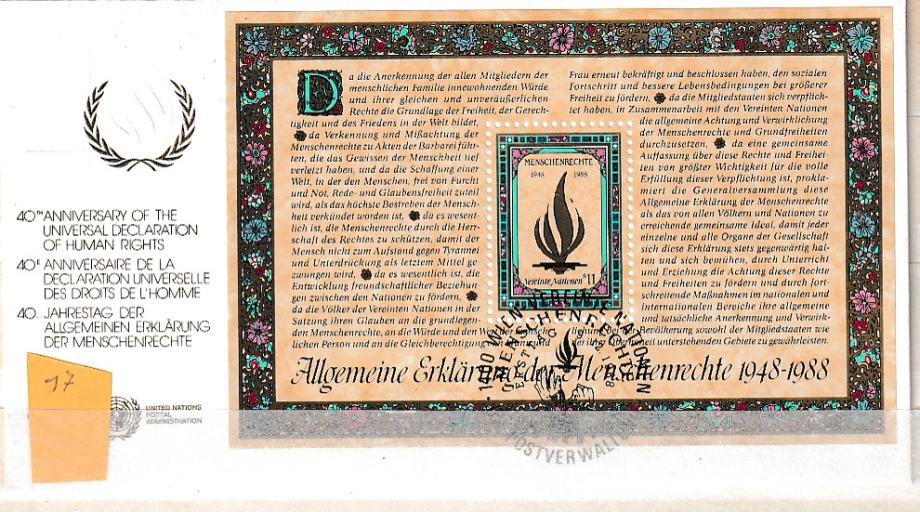 40TH ANNIVERSARY OF THE
UNIVERSAL DECLARATION
OF HUMAN RIGHTS
40E ANNIVERSAIRE DE LA
DECLARATION UNIVERSELLE
DES DROITS DE L'HOMME
40. JAHRESTAG DER
ALLGEMEINEN ERKLÄRUNG
DER MENSCHENRECHTE
17
UNITED NATIONS
POSTAL
ADMINISTRATION
Da die Anerkennung der allen Mitgliedern der
menschlichen Familie innewohnenden Würde
und ihrer gleichen und unveräußerlichen
Rechte die Grundlage der Freiheit, der Gerech-
tigkeit und des Friedens in der Welt bildet,
da Verkennung und Mißachtung der
Menschenrechte zu Akten der Barbarei führ-
ten, die das Gewissen der Menschheit tief
verletzt haben, und da die Schaffung einer
Welt, in der den Menschen, frei von Furcht
und Not, Rede- und Glaubensfreiheit zuteil
wird, als das höchste Bestreben der Mensch-
heit verkündet worden ist, da es wesent-
lich ist, die Menschenrechte durch die Herr-
schaft des Rechtes zu schützen, damit der
Mensch nicht zum Aufstand gegen Tyrannei
und Unterdrückung als letztem Mittel ge-
zwungen wird, da es wesentlich ist, die
Entwicklung freundschaftlicher Beziehun-
gen zwischen den Nationen zu fördern,
da die Völker der Vereinten Nationen in der
Satzung ihren Glauben an die grundlegen-
den Menschenrechte, an die Würde und den Wert der mensch-
lichen Person und an die Gleichberechtigung von Mann und
Frau erneut bekräftigt und beschlossen haben, den sozialen
Fortschritt und bessere Lebensbedingungen bei größerer
Freiheit zu fördern, da die Mitgliedstaaten sich verpflich-
tet haben, in Zusammenarbeit mit den Vereinten Nationen
die allgemeine Achtung und Verwirklichung
der Menschenrechte und Grundfreiheiten
durchzusetzen, da eine gemeinsame
Auffassung über diese Rechte und Freihei-
ten von größter Wichtigkeit für die volle
Erfüllung dieser Verpflichtung ist, prokla-
miert die Generalversammlung diese
Allgemeine Erklärung der Menschenrechte
als das von allen Völkern und Nationen zu
erreichende gemeinsame Ideal, damit jeder
einzelne und alle Organe der Gesellschaft
sich diese Erklärung stets gegenwärtig hal-
ten und sich bemühen, durch Unterricht
und Erziehung die Achtung dieser Rechte
und Freiheiten zu fördern und durch fort-
schreitende Maßnahmen im nationalen und
internationalen Bereiche ihre allgemeine
und tatsächliche Anerkennung und Verwirk-
lichung bei der Bevölkerung sowohl der Mitgliedstaaten wie
der ihrer Oberhoheit unterstehenden Gebiete zu gewährleisten.
MENSCHENRECHTE
1948 1988
Vereinte Nationen S11
Allgemeine Erklärung der Menschenrechte 1948-1988
1400 WIEN VEREINTE NATIONEN
MENSCHENRECHTE
POSTVERWALTUNG